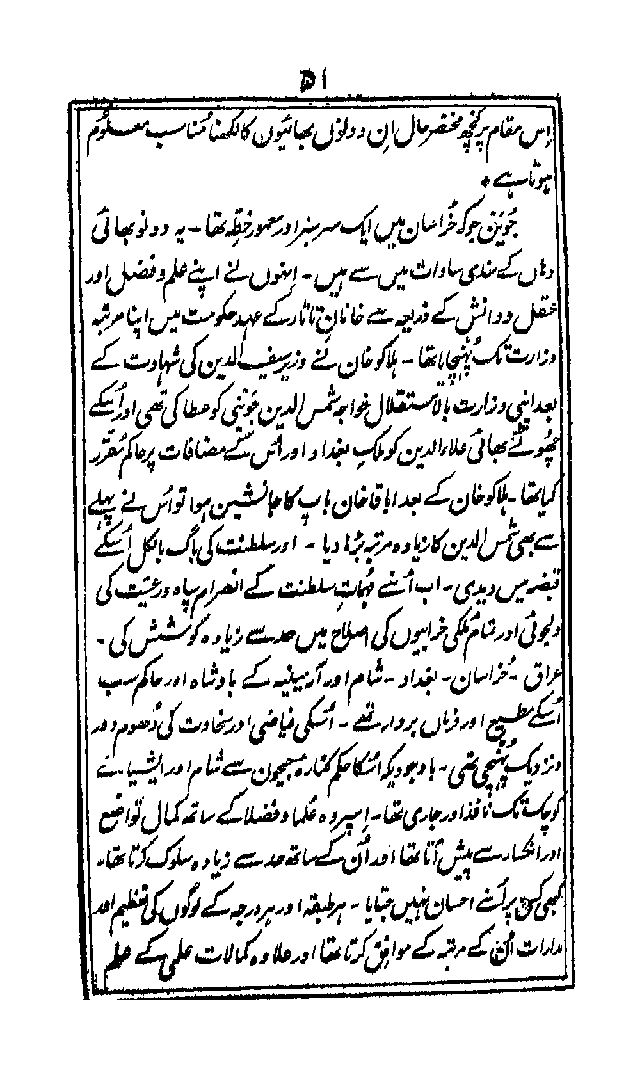 ۵۱
اِس مقام پر کچھ مختصر حال اِن دونوں بھائیوں کا لکھنا مُناسب معلُوم
ہوتا ہے *
جُوَین جو کہ خُراسان میں ایک سرسبز اور معمور خِطّہ تھا - یہ دونو بھائی
وہاں کے سادات میں سے ہیں - اِنہوں نے اپنے علم و فضل اور
عقل و دانش کے ذریعہ سے خانانِ تاتار کے عہدِ حکومت میں اپنا مرتبہ
وزارت تک پُہنچایا تھا - ہلاکو خان نے وزیر سیف الدین کی شہادت کے
بعد اپنی وزارت بالاستقلال خواجہ شمس الدین جُوَینی کو عطا کی تھی اور اُسکے
چھوٹے بھائی علاء الدین کو ملکِ بغداد اور اُس کے مضافات پر حاکم مُقرر
کیا تھا - ہلاکو خان کے بعد اباقا خان باپ کا جانشین ہوا تو اُس نے پہلے
سے بھی شمس الدین کا زیادہ مرتبہ بڑہا دیا - اور سلطنت کی باگ بالکل اُسکے
قبضہ میں دیدی - اب اُسنے مُہماتِ سلطنت کے انصرام سپاہ و رعیّت کی
دلجوئی اور تمام مُلکی خرابیوں کی اِصلاح میں حد سے زیادہ کوشش کی -
عراق - خُراسان - بغداد - شام اور آرمینیہ کے بادشاہ اور حاکم سب
اُسکے مطیع اور فرماں بردار تھے - اُسکی فیاضی اور سخاوت کی دُھوم دور
و نزدیک پُہنچی تھی - باوجودیکہ اُسکا حکم کنارہ جیحون سے شام اور ایشیاے
کوچک تک نافذ اور جاری تھا - اِسپر وہ عُلماء و فضلا کے ساتھ کمال تواضع
اور انکسار سے پیش آتا تھا اور اُن کے ساتھ حد سے زیادہ سلوک کرتا تھا -
کبھی کسی پر اُسنے احسان نہیں جتایا - ہر طبقہ اور ہر درجہ کے لوگوں کی تعظیم اور
مدارات اُن کے مرتبہ کے موافق کرتا تھا اور علاوہ کمالات علمی کے علم